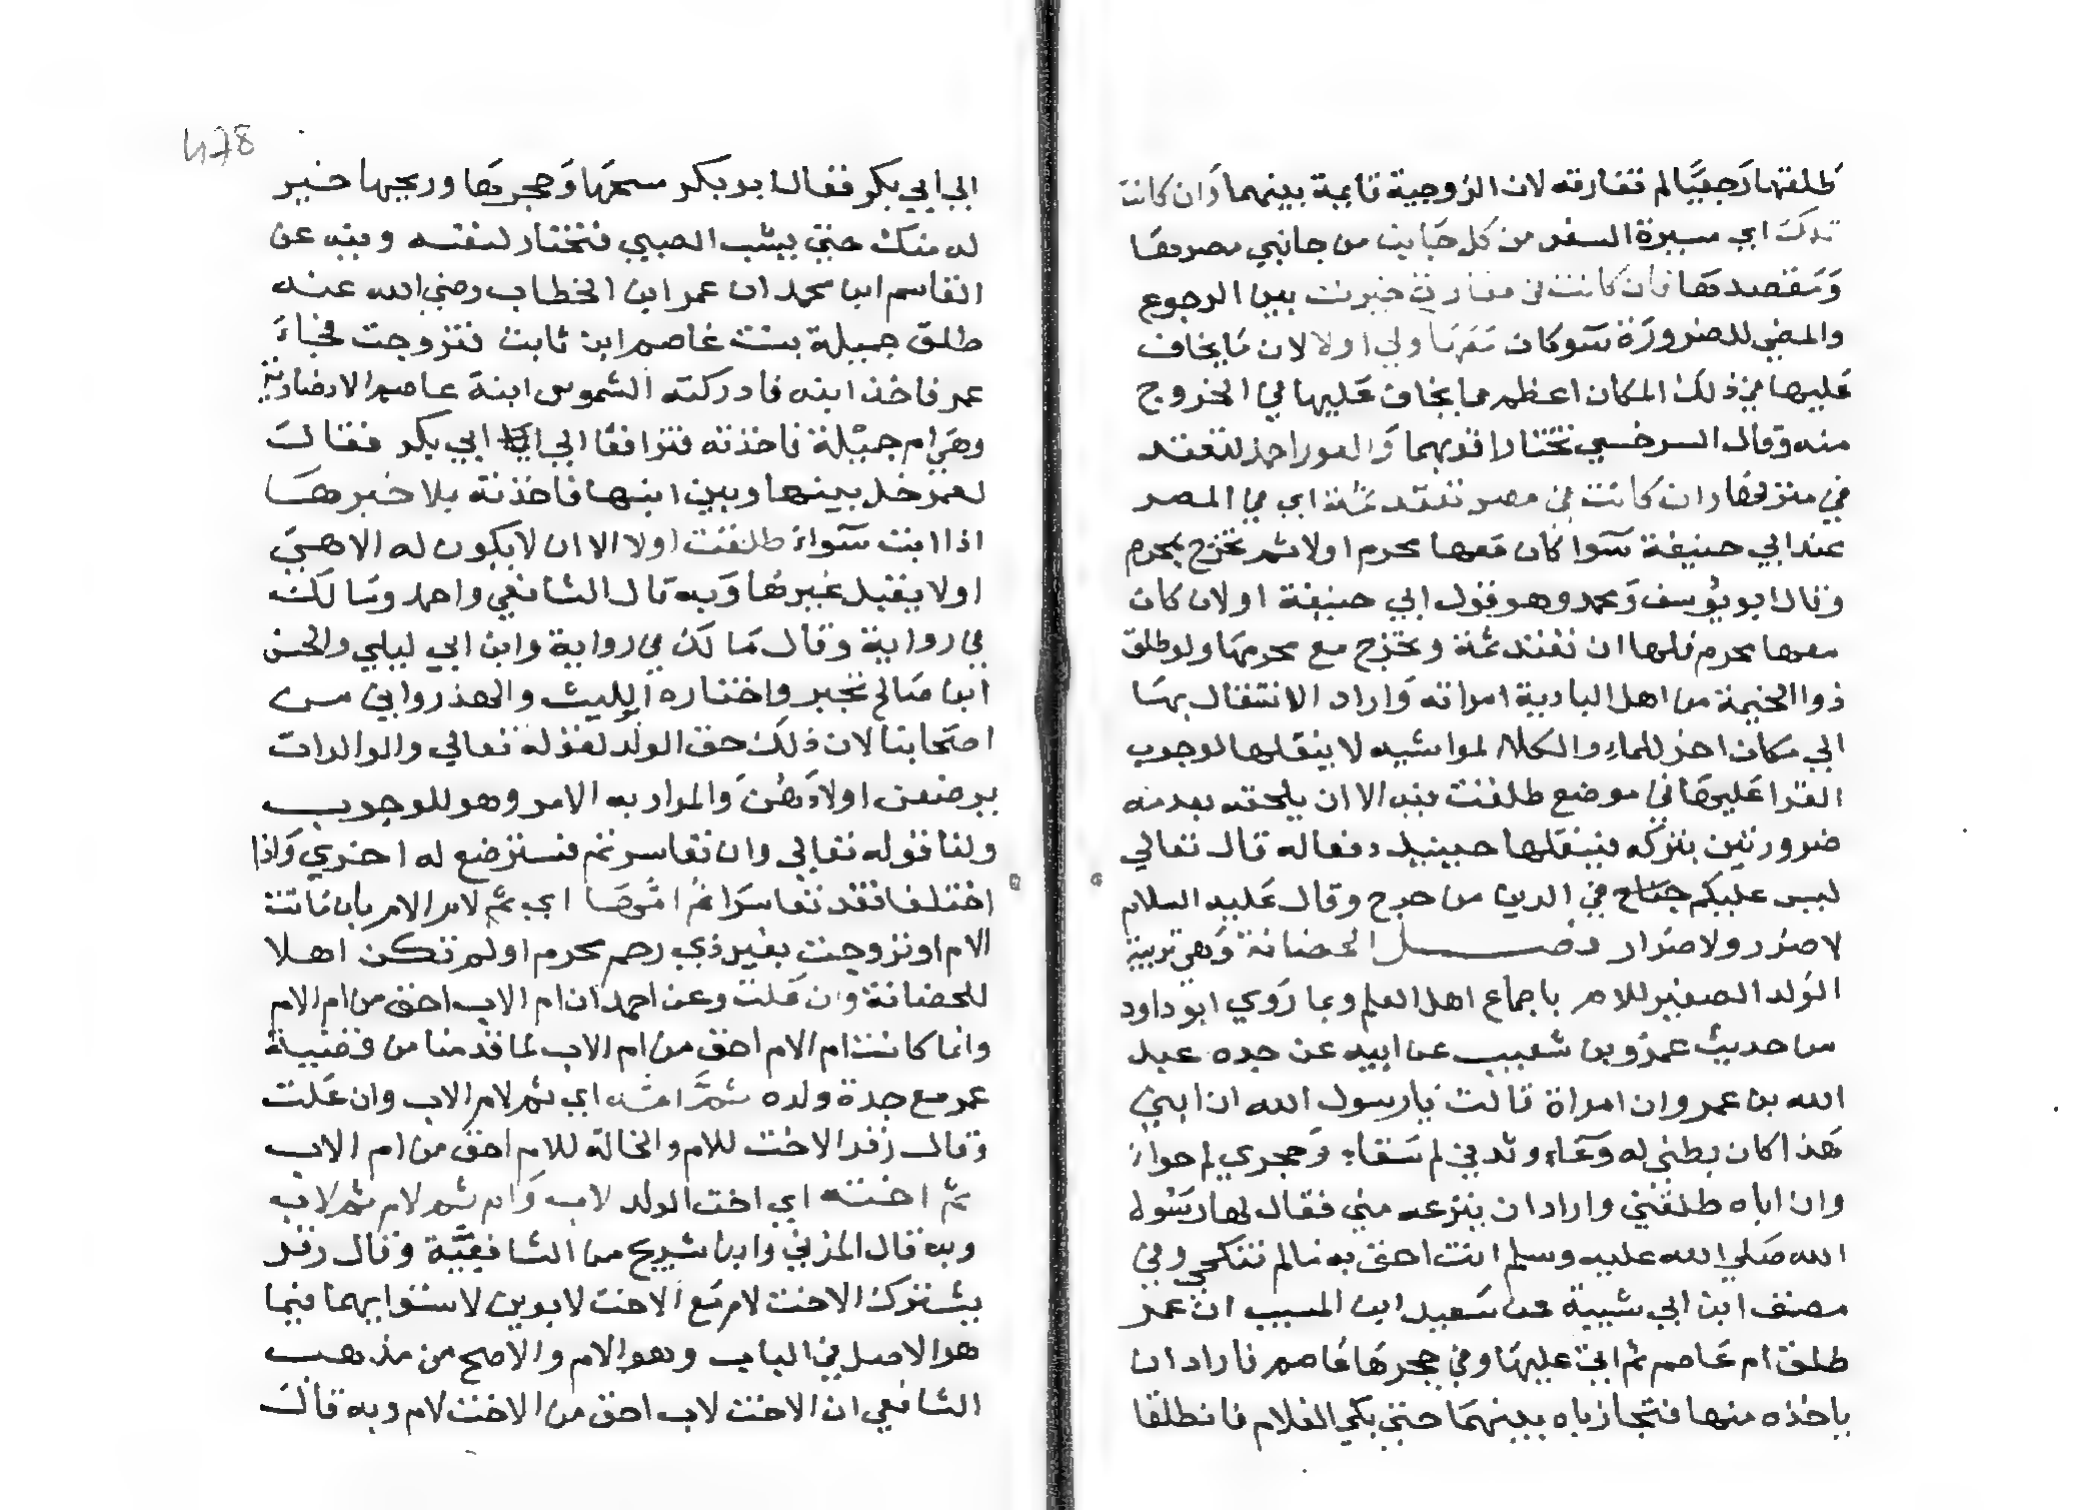 طلقتها رجعيا لم تفارقه لان الزوجية قايمة بينهما وان كانت
تلك اي مسيرة السفر من كل جانب من جانبي مصرها
ومقصدها فان كانت في مفازة خيرت بين الرجوع
والمضي للضرورة سوا كان معها ولي او لا لان ما يخاف
عليها في ذلك المكان اعظم مما يخاف عليها في الخروج
منه وقال السرخسي تختار اقربهما والعود احمد لتعتد
في منزلها وان كانت في مصر تعتد ثمة اي في المصر
عند ابي حنيفة سوا كان معها محرم او لا ثم تخرج بمحرم
وقال ابو يوسف ومحمد وهو قول ابي حنيفة اولا ان كان
معها محرم فلها ان تعتد ثمة وتخرج مع محرمها ولو طلق
ذوا الخيمة من اهل البادية امراته واراد الانتقال بها
الي مكان اخر للماء والكلاء لمواشيه لا ينقلها لوجوب
القرا عليها في موضع طلقت فيه الا ان يلحقه بعدمه
ضرورتين بتركه فينقلها حينيد دفعا له قال تعالي
ليس عليكم جناح في الدين من حرج وقال عليه السلام
لا ضرر ولا ضرار فصل الحضانة وهي تربية
الولد الصغير للام باجماع اهل العلم وبما روي ابو داود
من حديث عمرو بن شعيب عن ابيه عن جده عبد
الله بن عمرو ان امراة قالت يارسول الله ان ابني
هذا كان بطني له وعاء وثديي لم سقاء وحجري لم حواء
وان اباه طلقني واراد ان ينزعه مني فقال لها رسول
الله صلي الله عليه وسلم انت احق به مالم تنكحي وفي
مصنف ابن ابي شيبة عن سعيد ابن المسيب ان عمر
طلق ام عاصم ثم اتي عليها وفي حجرها عاصم فاراد ان
ياخذه منها فتجاذباه بينهما حتي بكي الغلام فانطلقا
478
الي ابي بكر فقال ابو بكر مسحها وحجرها وريحها خير
له منك حتي يشب الصبي فتختار لنفسه وفيه عن
القاسم ابن محمد ان عمر ابن الخطاب رضي الله عنه
طلق جميلة بنت عاصم ابن ثابت فتزوجت فجاء
عمر فاخذ ابنه فادركته الشموس ابنة عاصم الانصارية
وهي ام جميلة فاخذته فترافعا الي ابي بكر فقالت
لعمر خل بينها وبين ابنها فاخذته بلا خبرها
اذا ابت سواء طلقت او لا الا ان لا يكون له الا هي
او لا يقبل غيرها وبه قال الشافعي واحمد ومالك
في رواية وقال مالك في رواية وابن ابي ليلي والحسن
ابن صالح تجبر واختاره ابو الليث والهندواني من
اصحابنا لان ذلك حق الولد لقوله تعالي والوالدات
يرضعن اولادهن والمراد به الامر وهو للوجوب
ولنا قوله تعالي وان تعاسرتم فسترضع له اخري واذا
اختلفا فقد تعاسرا ثم امها اي ثم لام الام بان ماتت
الام او تزوجت بغير ذي رحم محرم او لم تكن اهلا
للحضانة وان علت وعن احمد ان ام الاب احق من ام الام
وانما كانت ام الام احق من ام الاب لما قدمنا من قضية
عمر مع جدة ولده ثم امه اي ثم لام الاب وان علت
وقال زفر الاخت للام والخالة للام احق من ام الاب
ثم اخته اي اخت الولد لاب وام ثم لام ثم لاب
وبه قال المزني وابن شريح من الشافعية وقال زفر
يشترك الاخت لام مع الاخت لابوين لاستوايهما فيما
هو الاصل في الباب وهو الام والاصح من مذهب
الشافعي ان الاخت لاب احق من الاخت لام وبه قال